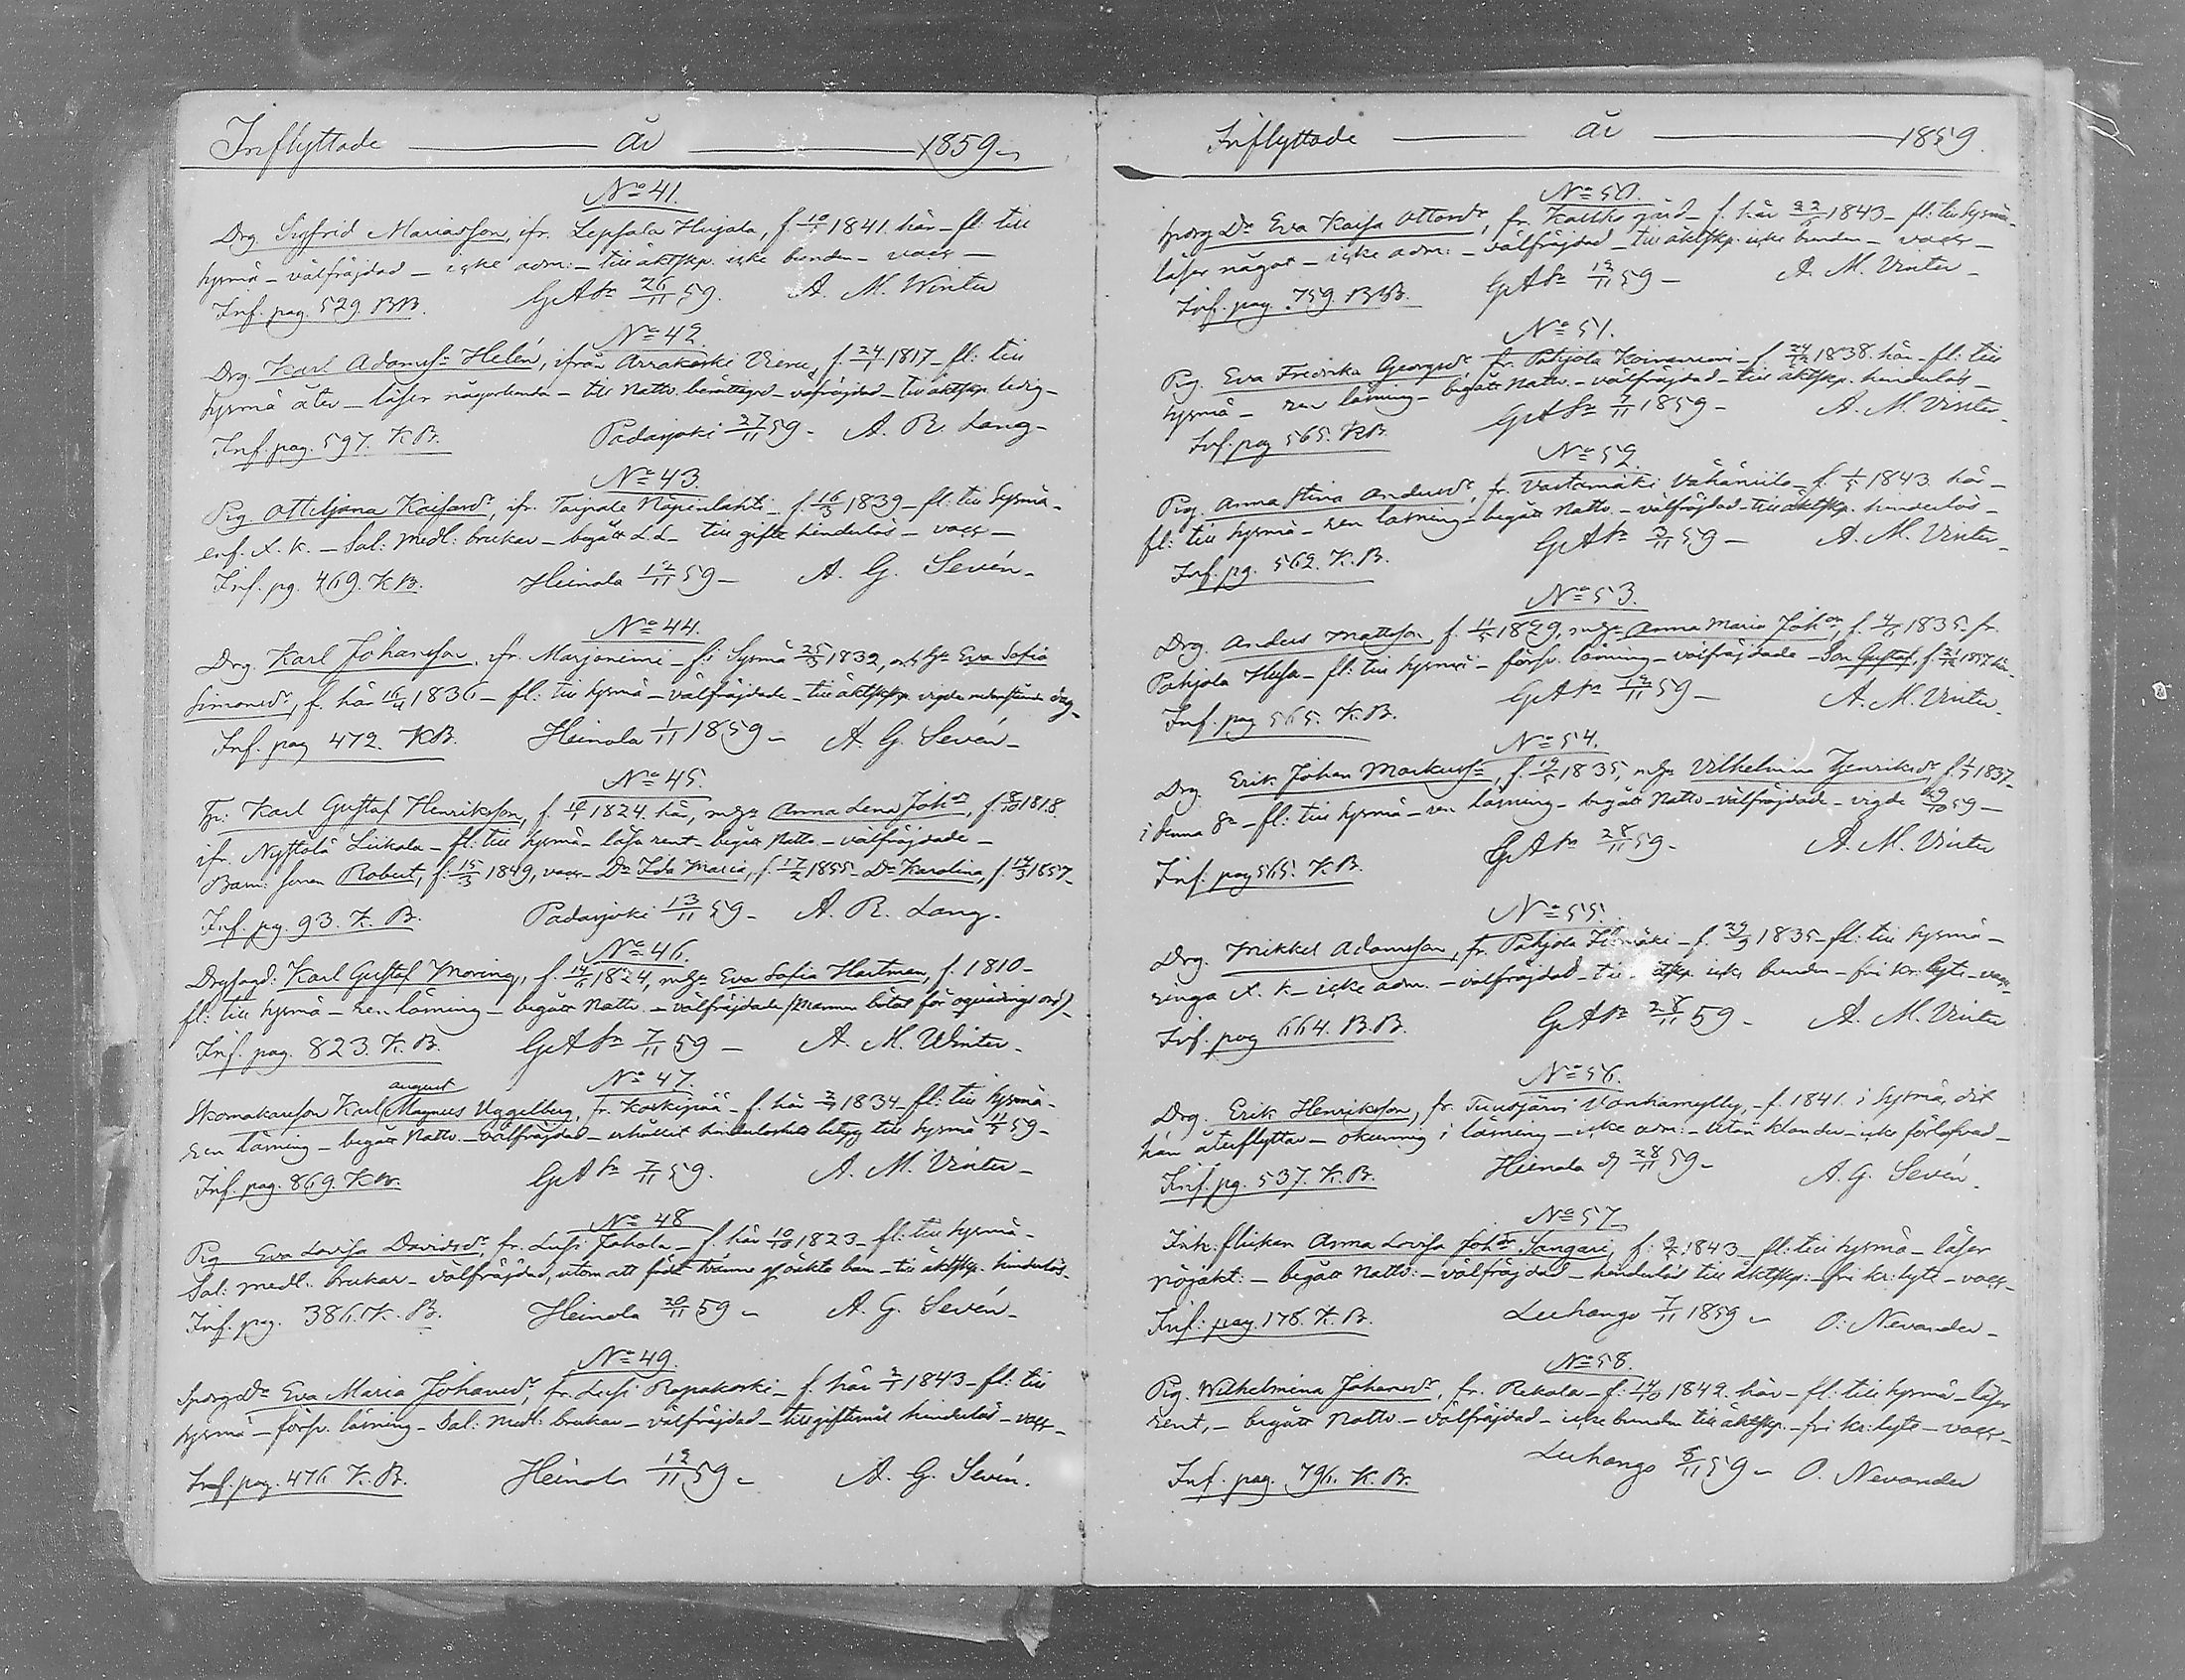 Inflyttade år 1859
No 41.
Drg Sigfrid Mariasson, ifr. Lepsala Huijala, f. 10/1 1841. här – fl: till
Sysmä – välfräjdad – icke adm: – till äktskp. icke bunden – vacc –
Inf. pag. 529. BB. GASn 26/11 59. A. M. Winter
No 42.
Drg. Karl Adamss Helén, ifrån Arrakoski Vieru, f. 24/1 1817 – fl: till
Sysmä åter – läser någorlunda – till Nattv. berättigad – välfräjdad – till äktskp. ledig –
Inf. pag. 597. K.B. Padasjoki 27/11 59 – A. R. Lang –
No 43.
Pig. Ottiljana Kaisasdr, ifr. Taipale Näpinlahti – f. 16/3 1839 – fl: till Sysmä –
enf. X. k. – Sal: Medl: brukar – begått L.L. – till gifte hinderlös – vacc –
Inf. pg. 469. KB. Heinola 12/11 59 – A. G. Sevén –
No 44.
Drg. Karl Johansson, ifr. Marjoniemi – f: i Sysmä 25/3 1832, och hu Eva Sofia
Simonsdr, f. här 16/4 1836 – fl: till Sysmä – välfräjdade – till äktskp vigda nedanstånde dag –
Inf. pag 472. KB. Heinola 1/11 1859 – A. G. Sevén –
No 45.
Tp: Karl Gustaf Henriksson, f. 16/1 1824. här, m hu Anna Lena Johdr, f. 8/10 1818.
ifr. Nystölä Liikola – fl: till Sysmä – läsa rent – begått Nattv – välfräjdade –
Barn: sonen Robert, f. 15/3 1849, vacc – Dr Ida Maria, f. 17/2 1855 – Dr Karolina, f. 14/3 1857 –
Inf. pg. 93. K. B. Padasjoki 13/11 59 – A. R. Lang.
No 46.
Karl Gustaf Moring, f. 14/1 1824, m hu Eva Sofia Hartman, f. 1810 –
fl: till Sysmä – ren läsning – begått Nattv. – välfräjdade (Mannen bötat för oquädings ord) –
Inf. pag. 823. K. B. GASn 7/11 59 – A. M. Winter –
august
No 47.
Skomakareson Karl Magnus Uggelberg, fr. Koskipää – f. här 2/7 1834 – fl: till Sysmä –
ren läsning – begått Nattv. – välfräjdad – erhållit hinderlöshets betyg till Sysmä 11/7 59 –
Inf. pag. 869. KB. GASn 7/11 59. A. M. Vinter –
No 48
Pig Eva Lovisa Davidsdr, fr. Lusi Jokola – f. här 10/10 1823 – fl: till Sysmä –
Sal: medl: brukar – välfräjdad, utom att födt tvänne oäkta barn – till äktskp. hinderlös –
Inf. pag. 386. K. B. Heinola 20/11 59 – A. G. Sevén –
No 49.
Sporg Dr Eva Maria Johansdr, fr. Lusi Rapakoski – f. här 2/1 1843 – fl: till
Sysmä – försv. läsning – Sal: Medl: brukar – välfräjdad – till giftemål hinderlös – vacc –
Inf. pag. 476 K. B. Heinola 12/11 59 – A. G. Sevén.
Inflyttade år 1859.
No 50.
Sporg Dr Eva Kaisa Ottosdr, fr. Kalhо gård – f. här 22/6 1843 – fl: till Sysmä –
läser något – icke adm: – välfräjdad – till äktskp. icke bunden – vacc –
Inf. pag. 759. BB. GASn 12/11 59 – A. M. Vinter –
No 51.
Pig. Eva Fredrika Georgsdr, fr. Pohjola Koivuniemi – f. 24/12 1838. här – fl: till
Sysmä – ren läsning – begått Nattv. – välfräjdad – till äktskp. hinderlös –
Inf. pag 565. KB. GASn 7/11 1859 – A. M. Vinter –
No 52.
Pig. Anna Stina Andersdr, fr. Vartamäki Vähäniilo – f. 1/5 1843. här –
fl: till Sysmä – ren läsning – begått Nattv. – välfräjdad – till äktskp. hinderlös –
Inf. pg. 562. K.B. GASn 3/11 59 – A. M. Vinter –
No 53.
Drg. Anders Mattsson, f. 11/5 1829, m hu Anna Maria Johdr, f. 4/6 1835. fr.
Pohjola – fl: till Sysmä – försv. läsning – välfräjdade – Son Gustaf, f. 21/12 1857. här –
Inf. pag 565. K. B. GASn 12/11 59 – A. M. Vinter.
No 54.
Drg. Erik Johan Markuss, f. 12/5 1835, m hu Vilhelmina Henriksdr, f. 4/7 1837 –
i denna Sn – fl: till Sysmä – ren läsning – begått Nattv – välfräjdade – vigde 29/10 59 –
Inf. pag 565. K. B. GASn 28/11 59 – A. M. Vinter
No 55.
Drg. Mikkel Adamsson, fr. Pohjola – f. 29/9 1835 – fl: till Sysmä –
ringa X. k – icke adm. – välfräjdad – till äktskp. icke bunden – fri kr. lyte – vacc –
Inf. pag 664. B.B. GASn 28/11 59 – A. M. Vinter
No 56.
Drg. Erik Henriksson, fr. Tuusjärvi Vanhamylly, – f. 1841. i Sysmä, dit
han återflyttar – okunnig i läsning – icke adm: – utan klander – icke förlofvad –
Inf. pg. 537. K. B. Heinola d 28/11 59 – A. G. Sevén.
No 57.
Inh: flickan Anna Lovisa Johdr Sangari, f. 9/5 1843 – fl: till Sysmä – läser
nöjakt: – begått Nattv: – välfräjdad – hinderlös till äktskp: – fri kr: lyte – vacc –
Inf: pag. 176. K. B. Luhango 7/11 1859 – O: Nevander –
No 58.
Pig. Wilhelmina Johansdr, fr. Rekola – f. 14/10 1842. här – fl: till Sysmä – läser
rent, – begått Nattv. – välfräjdad – icke bunden till äktskp. – fri kr: lyte – vacc –
Inf. pag. 796. K. B. Luhango 5/11 59 – O. Nevander